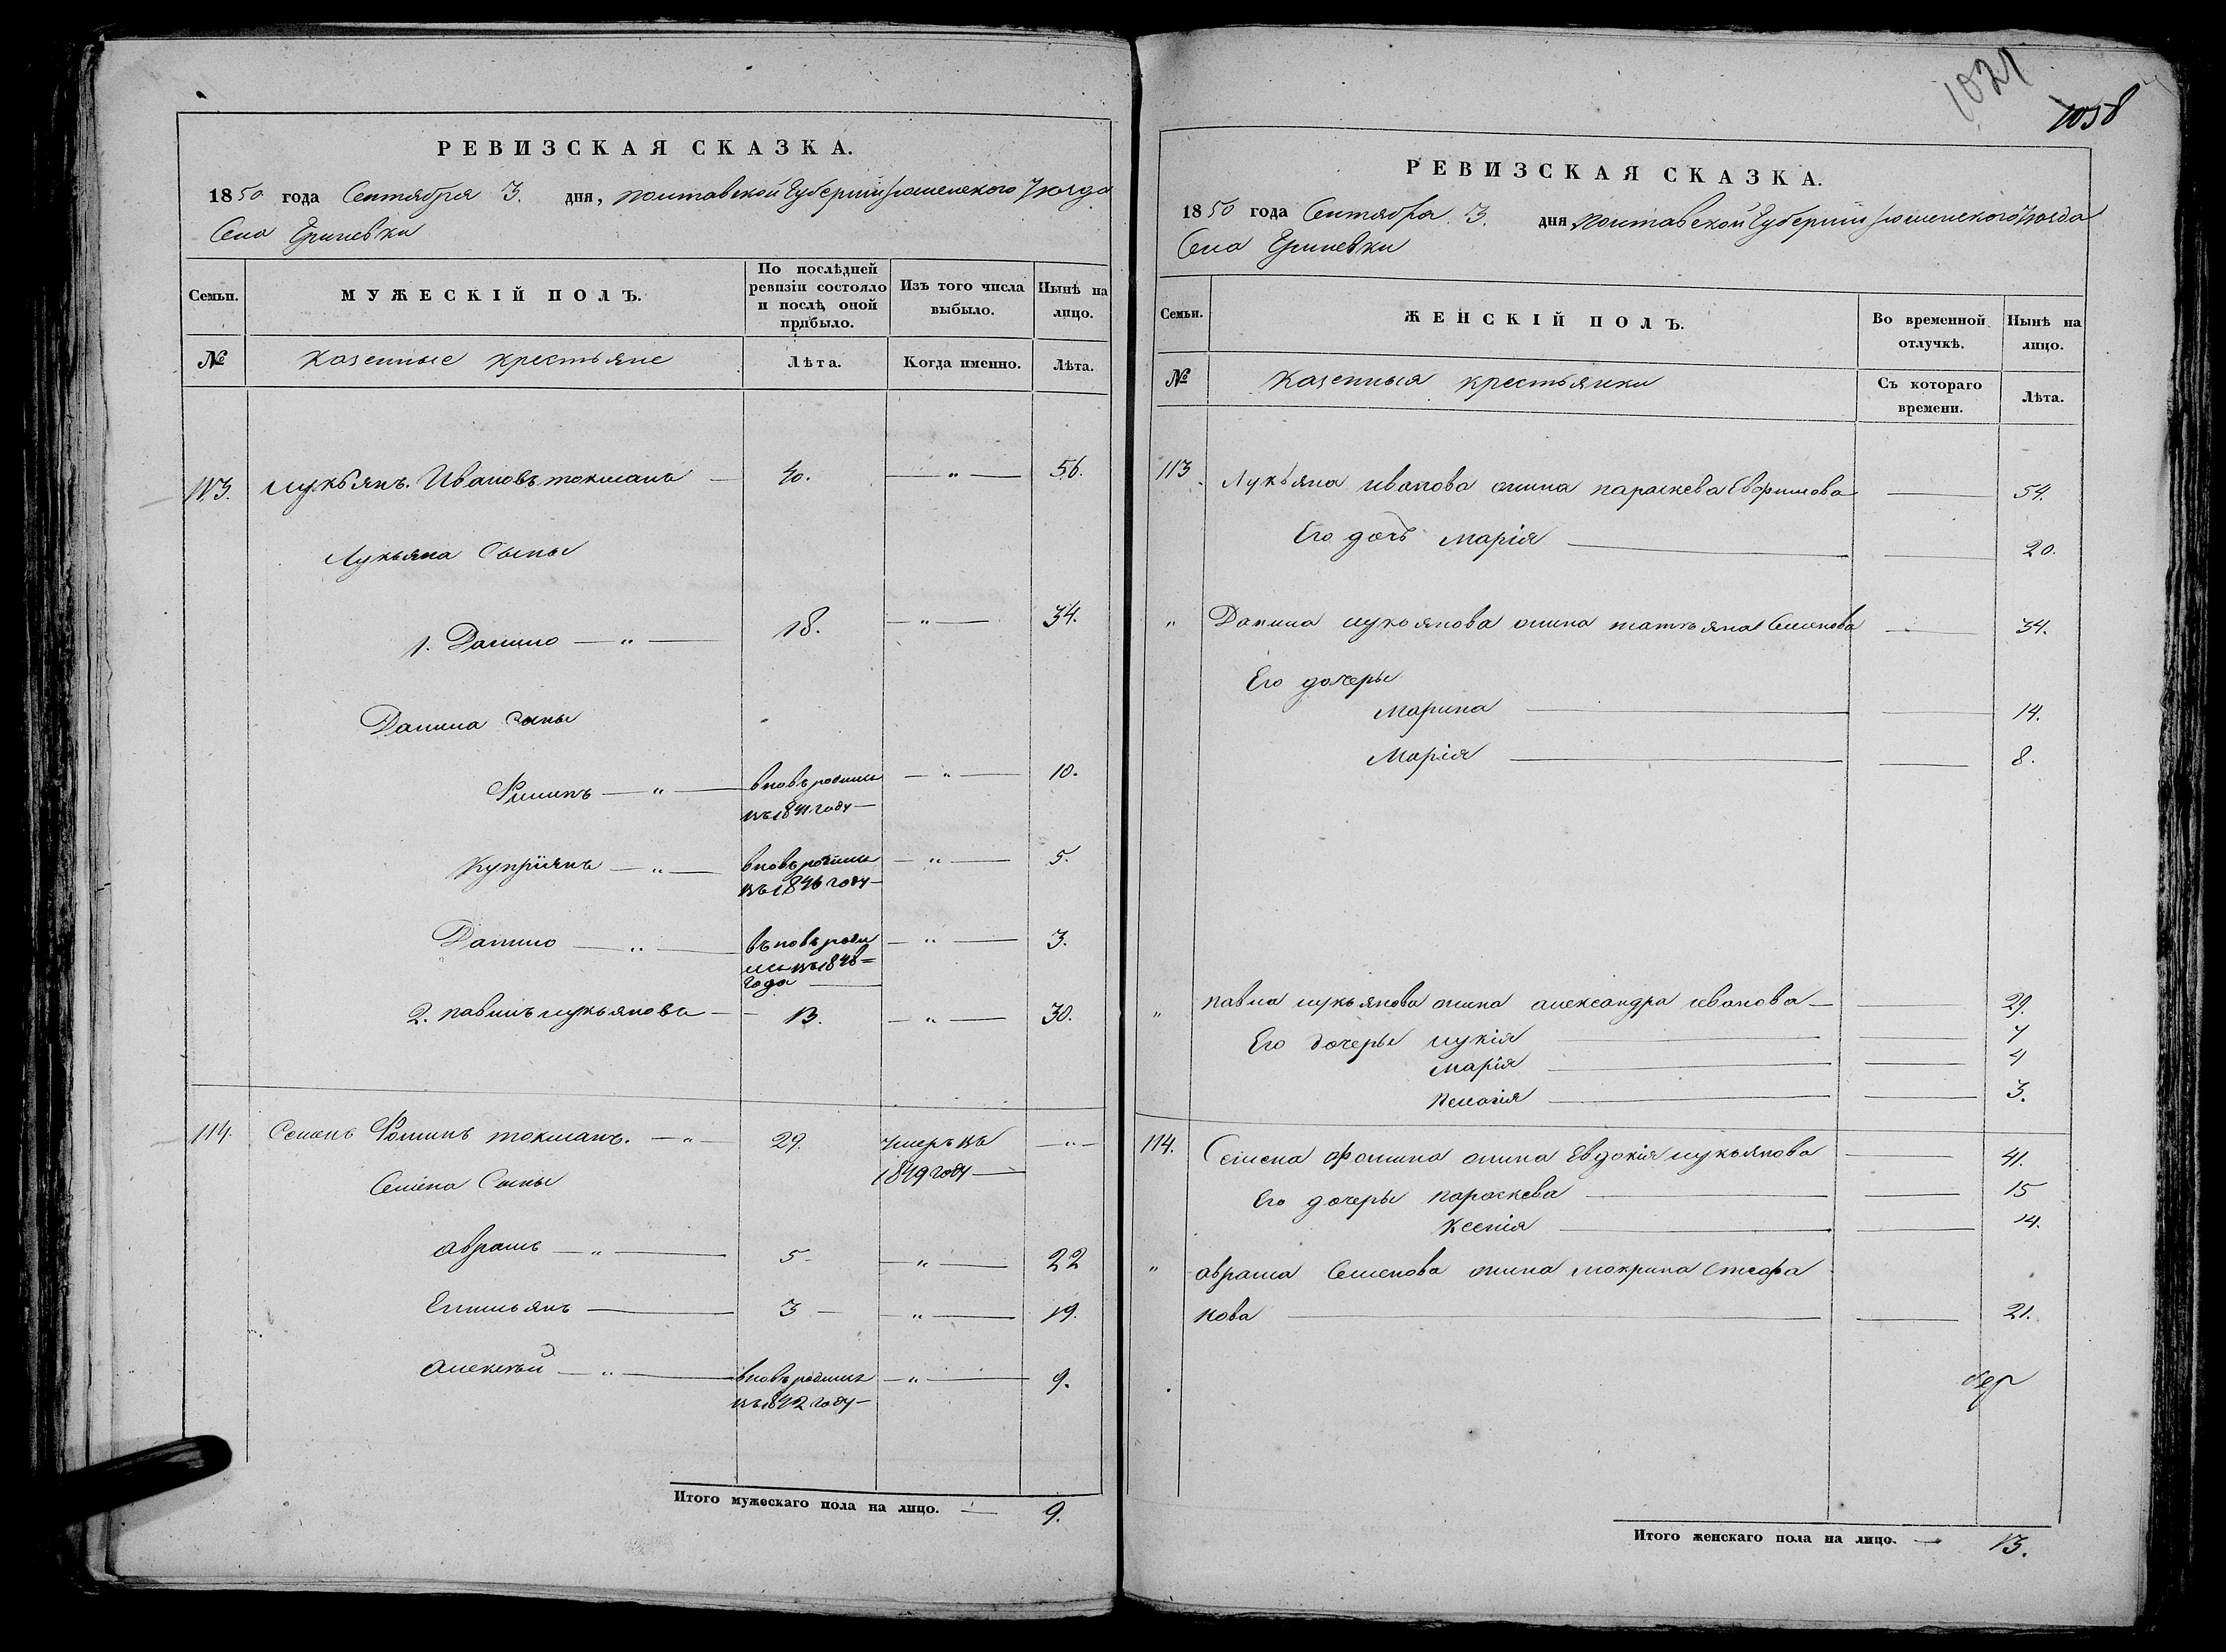 РЕВИЗСКАЯ СКАЗКА.
1850 года Сентября 3. дня, полтавской Губернии роменского Уезда
Села Гриневки
Семьи. МУЖЕСКІЙ ПОЛЪ. По послѣдней ревизіи состояло и послѣ оной прибыло. Изъ того числа выбыло. Нынѣ на лицо.
№ Казенные крестьяне Лѣта. Когда именно. Лѣта.
113. лукьянъ. Ивановъ токманъ — 40. — " — 56.
Лукьяна Сыны
1. Данило — " — 18. — " — 34.
Данила сыны
вновь родился — " — 10.
въ 1841 году —
Купріянъ — " — вновь родился — " — 5.
въ 1846 году —
Данило — " — въновь роди — " — 3.
лся въ 1848 =
года —
2. павилъ лукьяновъ — 13. — " — 30.
114. Семенъ Фоминъ токманъ. — " — 29. Умеръ въ — " —
Семена Сыны 1849 году —
аврамъ — " — 5 — — " — 22
Емильянъ — 3 — — " — 19.
алексѣй — " — вновь родился — " — 9.
въ 1842 году —
Итого мужескаго пола на лицо. — 9.
1021
1058
РЕВИЗСКАЯ СКАЗКА.
1850 года Сентября 3. дня полтавской Губернии роменского Уезда
Села Гриневки
Семьи. ЖЕНСКІЙ ПОЛЪ. Во временной отлучкѣ. Нынѣ на лицо.
№ Казенныя крестьянки Съ котораго времени. Лѣта.
113. Лукьяна иванова жина параскева Евфимова — 54.
Его дочь марія — — 20.
" Данила лукьянова жина татьяна Семенова — 34.
Его дочеры
марина — — 14.
Марія — — 8.
" павла лукьянова жина александра иванова — — 29.
Его дочеры лукія — — 7
марія — — 4
пелагія — — 3.
114. Семена фомина жина Евдокія лукьянова — 41.
Его дочеры параскева — — 15
Ксенія — — 14.
" аврама Семенова жина мокрина Стефа
нова — — 21.
Итого женскаго пола на лицо. — 13.